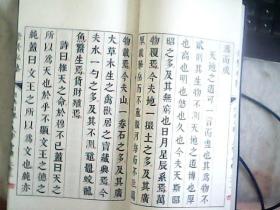 爲而成
天地之道可一言而盡也其爲物不
貳則其生物不測天地之道博也厚
也高也明也悠也久也今夫天斯昭
昭之多及其無窮也日月星辰繫焉萬
物覆焉今夫地一撮土之多及其廣
厚載華嶽而不重振河海而不洩萬
物載焉今夫山一卷石之多及其廣
大草木生之禽獸居之寶藏興焉今
夫水一勺之多及其不測黿鼉蛟龍
魚鼈生焉貨財殖焉
詩曰維天之命於穆不已蓋曰天之
所以爲天也於乎不顯文王之德之
純蓋曰文王之所以爲文也純亦